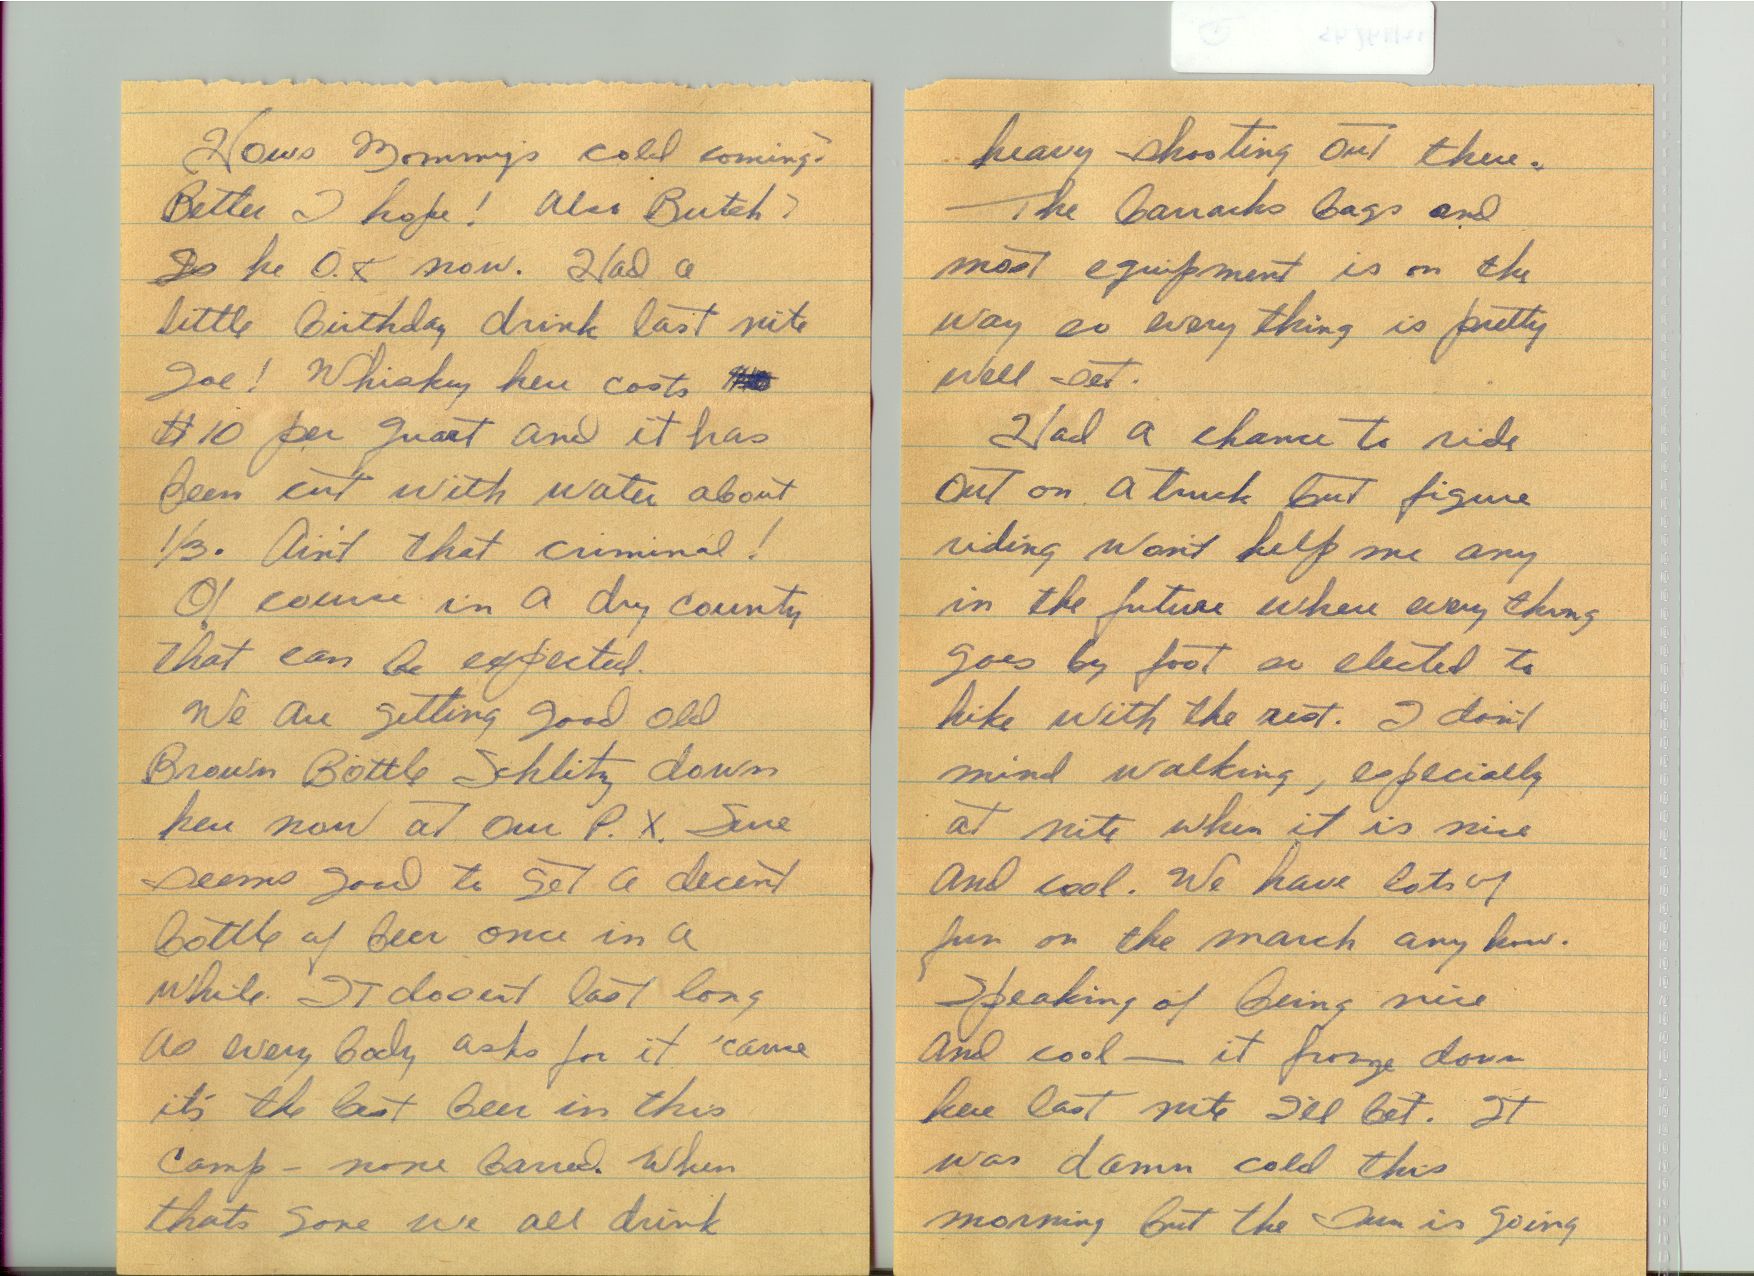 Hows Mommys cold coming?
Better I hope! Also Butch?
Is he O.K now. Had a
little birthday drink last nite
Joe! Whiskey here costs
$10 per quart and it has
been cut with water about
1/3. Ain't that criminal!
Of course in a dry county
that can be expected.
We are getting good old
Brown Bottle Schlitz down
here now at our P.X. Sure
seems good to get a decent
bottle of beer once in a
while. It doesn't last long
as every body asks for it 'cause
it's the best beer in this
camp - none barred. When
thats gone we all drink
heavy shooting out there.
The barracks bags and
most equipment is on the
way so every thing is pretty
well set.
Had a chance to ride
out on a truck but figure
riding won't help me any
in the future where every thing
goes by foot so elected to
hike with the rest. I don't
mind walking, especially
at nite when it is nice
and cool. We have lots of
fun on the march any how.
Speaking of being nice
and cool — it froze down
here last nite I'll bet. It
was damn cold this
morning but the sun is going